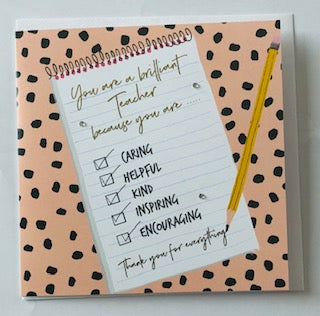 You are a brilliant
Teacher
because you are .....
CARING
HELPFUL
KIND
INSPIRING
ENCOURAGING
Thank you for everything